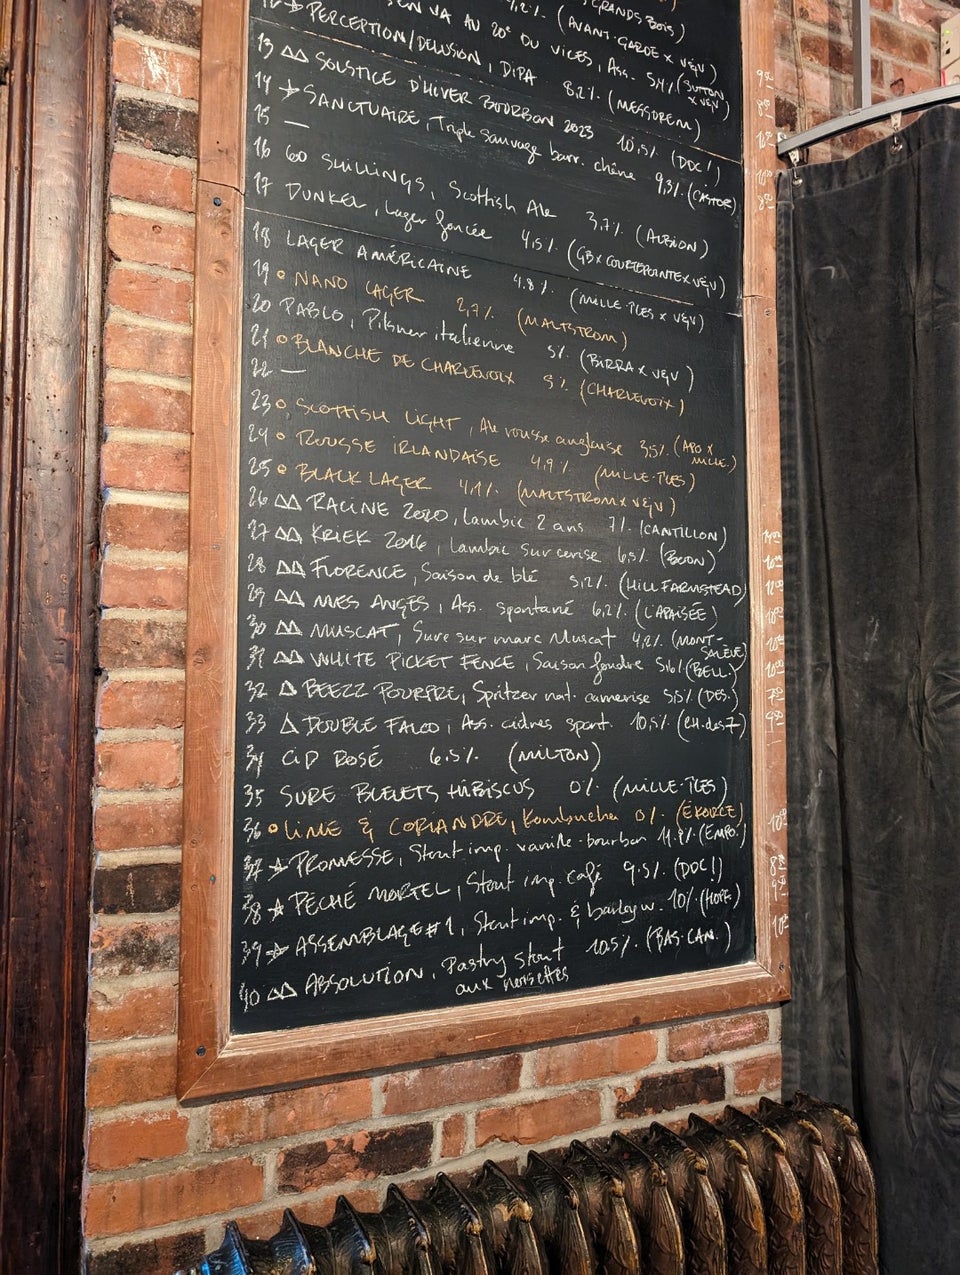 4,2%. (GRANDS BOIS)
VA AU 20e DU VICES, Ass. 5,4% (SUTTON x VQV)
(AVANT-GARDE x VQV)
13 PERCEPTION/DELUSION, DIPA 8,2%. (MESSOREM)
14 △△ SOLSTICE D'HIVER BOURBON 2023 10,5% (DDC!)
SANCTUAIRE, Triple sauvage barr. chêne 9,3% (CASTOR)
15 —
16 60 SHILLINGS, Scottish Ale 3,7% (ALBION)
17 DUNKEL, Lager foncée 4,5% (GB x COURTEPOINTE x VQV)
18 LAGER AMÉRICAINE 4.8% (MILLE-ÎLES x VQV)
19 o NANO LAGER 2,7% (MALTSTROM)
20 PABLO, Pilsner italienne 5% (BIRRA x VQV)
21 o BLANCHE DE CHARLEVOIX 5% (CHARLEVOIX)
22 —
23 o SCOTTISH LIGHT, Ale rousse anglaise 3,5% (ABO x MILLE.)
24 o ROUSSE IRLANDAISE 4,9% (MILLE-ÎLES)
25 o BLACK LAGER 4,1% (MALTSTROM x VQV)
26 △△ RACINE 2020, Lambic 2 ans 7%. (CANTILLON)
27 △△ KRIEK 2016, Lambic sur cerise 6,5%. (BOON)
28 △△ FLORENCE, Saison de blé 5,2%. (HILL FARMSTEAD)
29 △△ MES ANGES, Ass. spontané 6,2%. (L'APAISÉE)
30 △△ MUSCAT, Sure sur marc Muscat 4,2% (MONT-SALÈVE)
31 △△ WHITE PICKET FENCE, Saison foudre 5,6% (BELL.)
32 △ BEEZZ POURPRE, Spritzer nat. camerise 5,5% (DES.)
33 △ DOUBLE FALCO, Ass. cidres spont. 10,5% (CH.des 7)
34 CID ROSÉ 6.5%. (MILTON)
35 SURE BLEUETS HIBISCUS 0% (MILLE-ÎLES)
36 o LIME & CORIANDRE, Kombucha 0%. (EKORCE)
37 ☆ PROMESSE, Stout imp. vanille-bourbon 11.9% (EMPO.)
38 ☆ PÉCHÉ MORTEL, Stout imp. café 9.5% (DDC!)
39 ☆ ASSEMBLAGE #1, Stout imp. & barley w. 10% (HOPF.)
40 △△ ABSOLUTION, Pastry stout aux noisettes 10.5%. (BAS-CAN.)